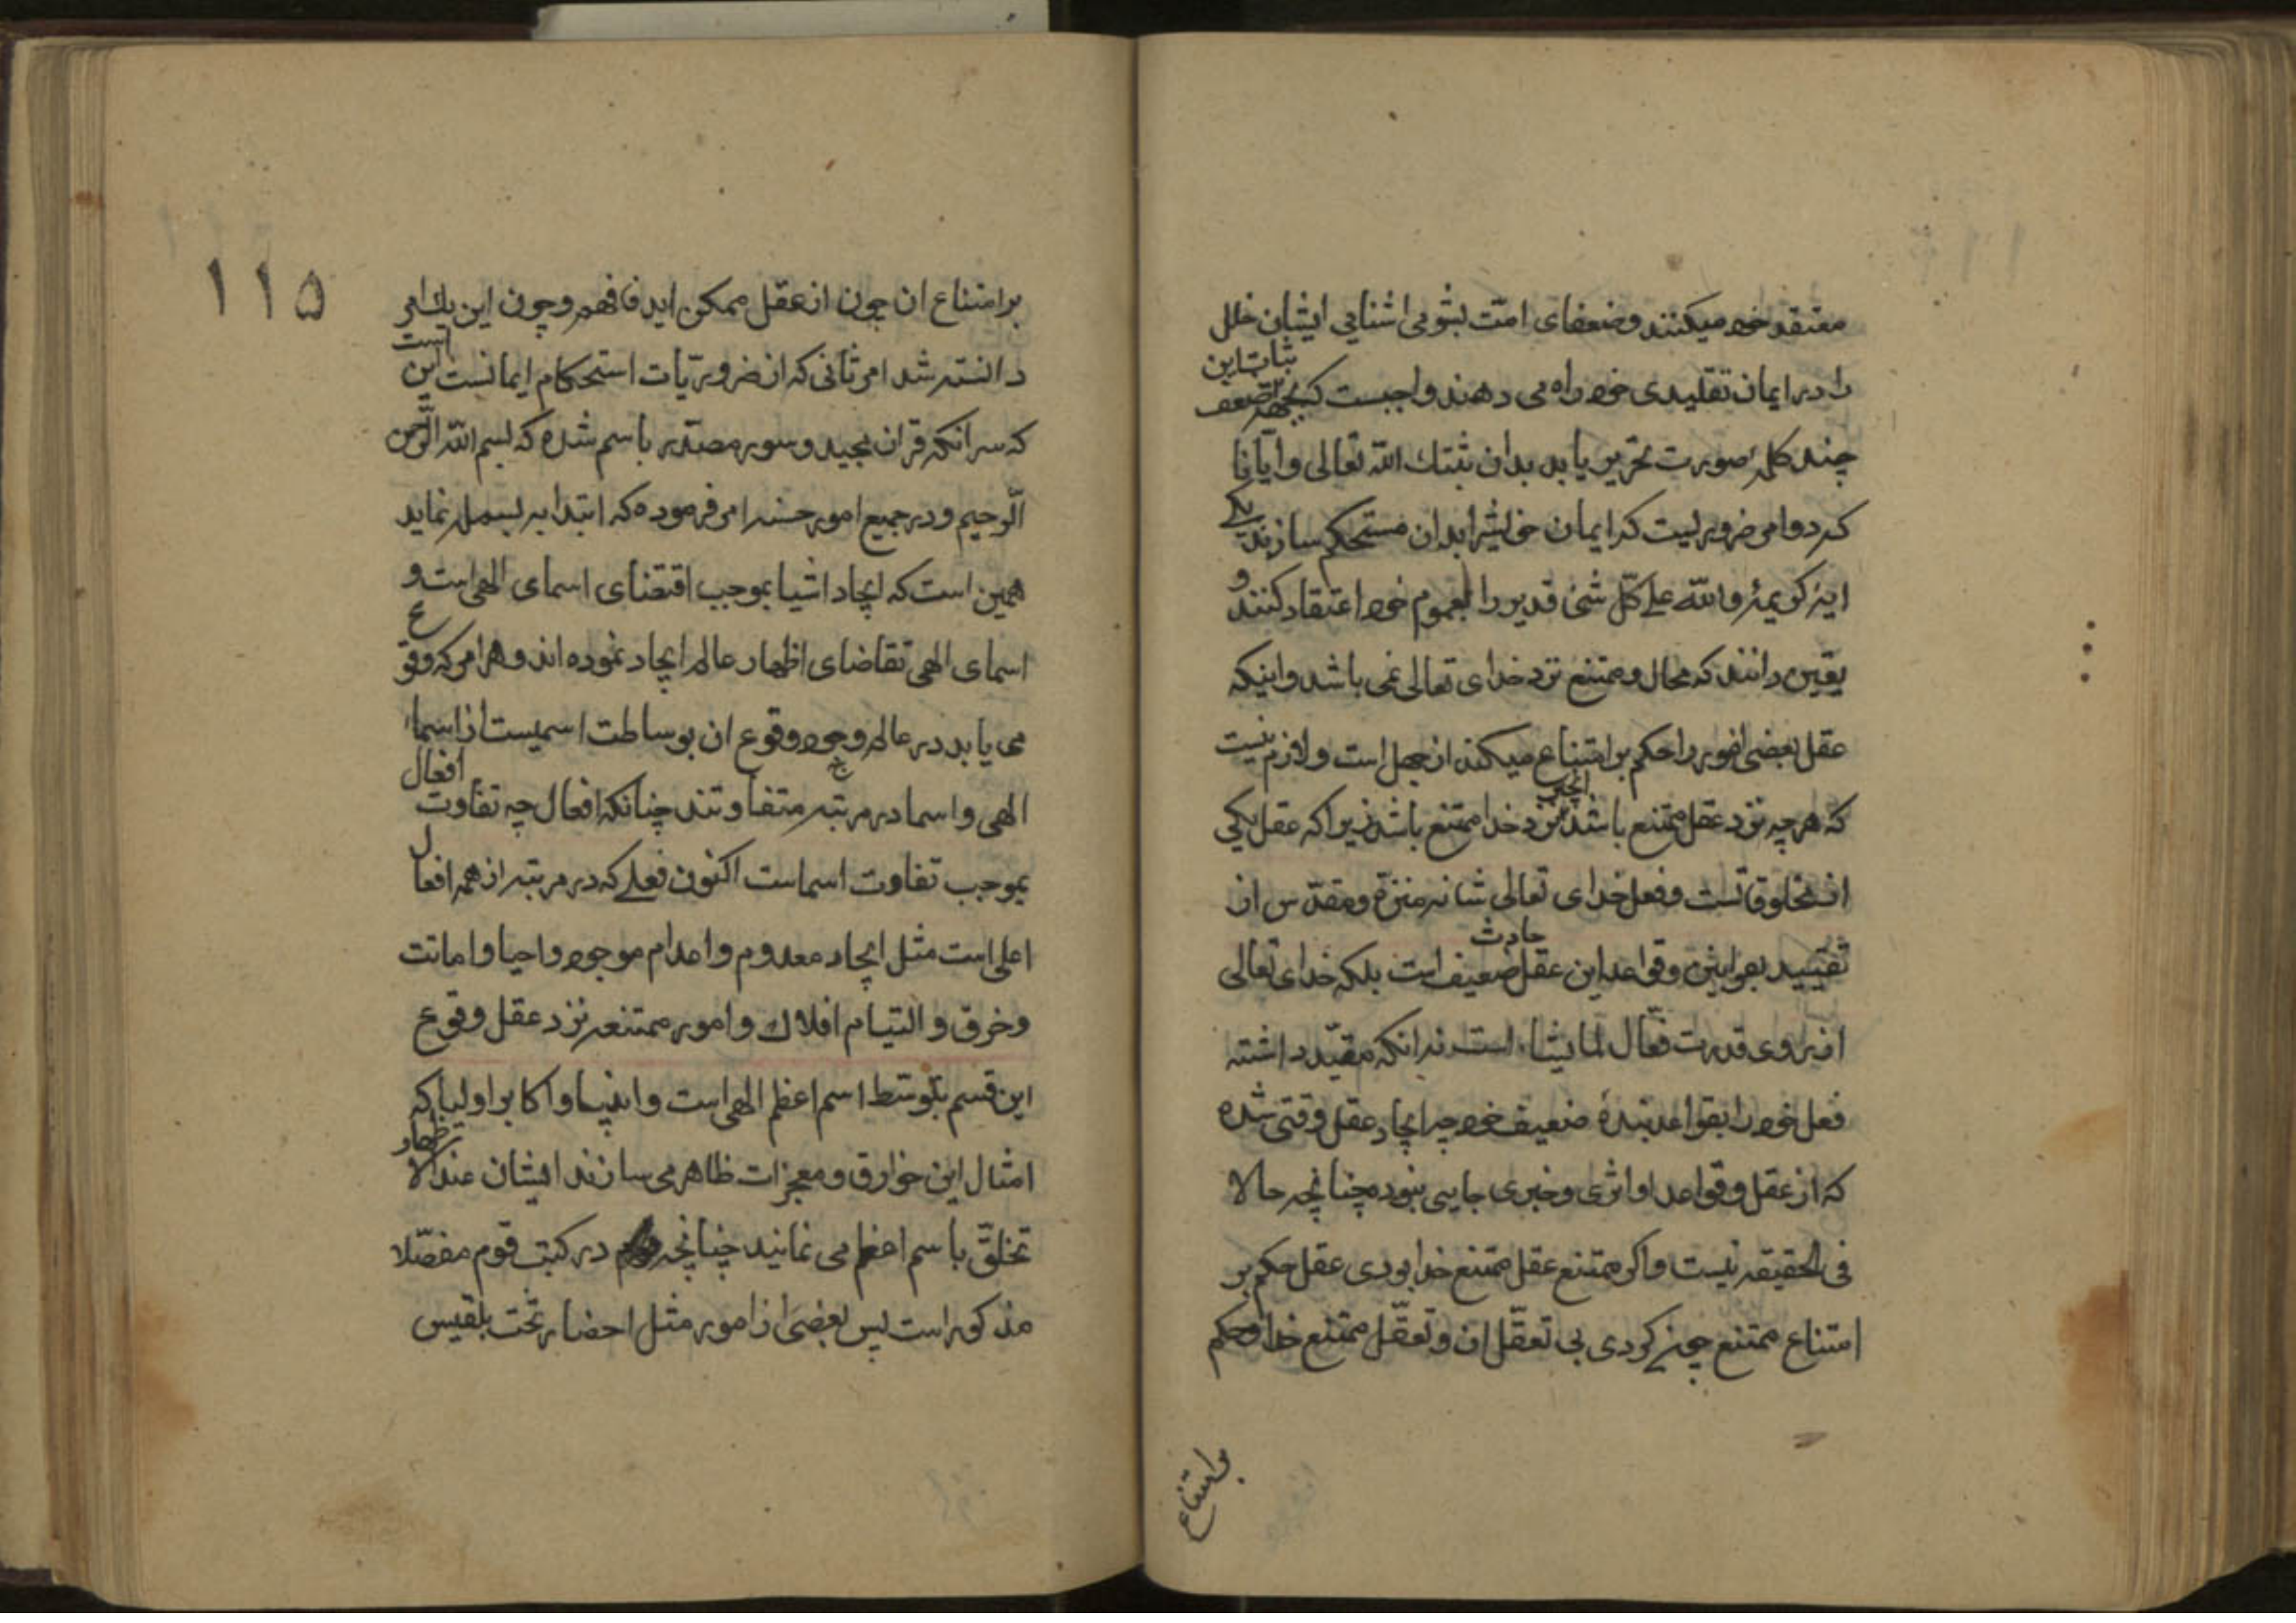 معتقد خود میکنند و ضعفای امّت بشومی اشنایی ایشان خلل
را در ایمان تقلیدی خود راه می دهند واجبست که بجهة ثبات این ضعف
چند کلمه صورت تحریر یابد بدان ثبتك الله تعالی و ایّانا
که دو امر ضروریست که ایمان خویش را بدان مستحکم سازند یکی
اینکه کریمهٔ والله علی کلّ شئ قدیر را بعموم خود اعتقاد کنند و
یقین دانند که محال و ممتنع نزد خدای تعالی نمی باشد و اینکه
عقل بعضی امور را حکم بر امتناع میکند از جهل است و لازم نیست
که هر چه نزد عقل ممتنع باشد انچیز نزد خدا ممتنع باشد زیرا که عقل یکی
از مخلوقاتست و فعل خدای تعالی شانه منزّه و مقدّس از
تقیید بقوانین و قواعد این عقل حادث ضعیف است بلکه خدای تعالی
از روی قدرت فعّال لما یشاء است نه انکه مقیّد داشته
فعل خود را بقواعد بندهٔ ضعیف خود چه ایجاد عقل وقتی شده
که از عقل و قواعد او اثری و خبری جایی نبوده چنانچه حالا
فی الحقیقه نیست و اکر ممتنع عقل ممتنع خدا بودی عقل حکم بر
امتناع ممتنع چون کردی بی تعقّل ان و تعقّل ممتنع خدا و حکم
بر امتناع
۱۱۵
بر امتناع ان چون از عقل ممکن اید فافهم و چون این یك امر
دانسته شد امر ثانی که از ضروریّات استحکام ایمانست این است
که سر انکه قران مجید و سور مصدّر باسم شده که بسم الله الرّحمن
الرّحیم و در جمیع امور حسنه امر فرموده که ابتدا به بسمله نماید
همین است که ایجاد اشیا بموجب اقتضای اسمای الهی است و
اسمای الهی تقاضای اظهار عالم ایجاد نموده اند و هر امر که وقوع
می یابد در عالم وجود وقوع ان بوساطت اسمیست از اسماء
الهی و اسما در مرتبه متفاوتند چنانکه افعال چه تفاوت افعال
بموجب تفاوت اسماست اکنون فعلی که در مرتبه از همه افعال
اعلی است مثل ایجاد معدوم و اعدام موجود و احیا و اماتت
و خرق و التیام افلاك و امور ممتنعه نزد عقل وقوع
این قسم بتوسّط اسم اعظم الهی است و انبیا و اکابر اولیا که
امثال این خوارق و معجزات ظاهر می سازند ایشان عند الاظهار
تخلّق باسم اعظم می نمایند چنانچه در کتب قوم مفصّلا
مذکور است پس بعضی از امور مثل احضار تخت بلقیس